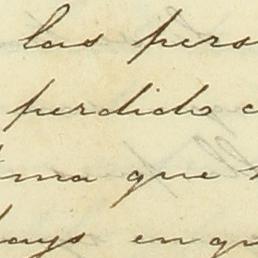 las pers
perdido c
ma que
hays en qu